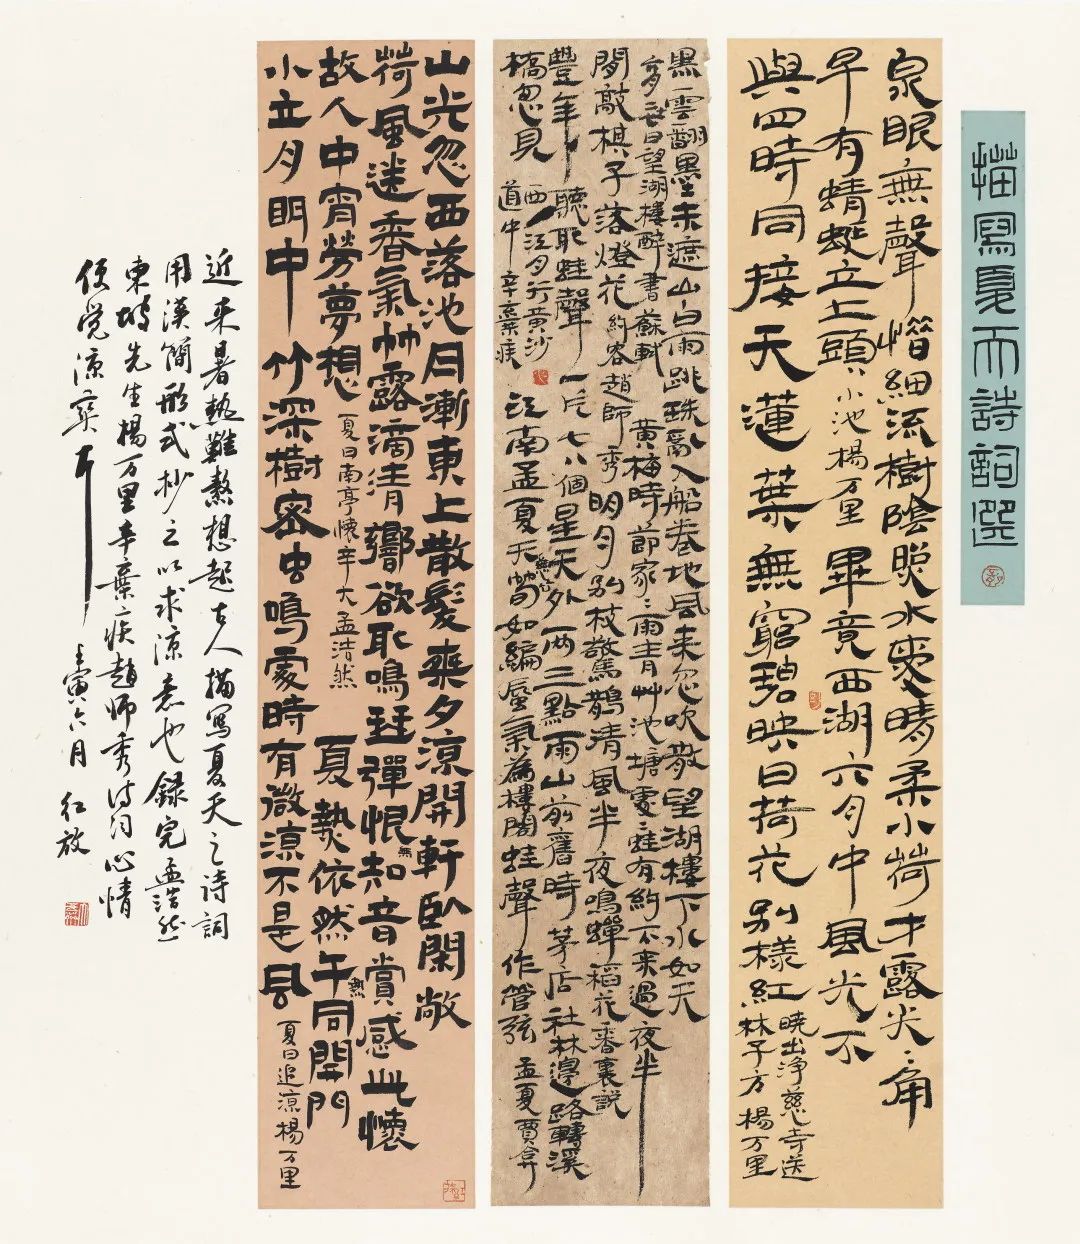 描寫夏天詩詞選
泉眼無聲惜細流樹陰照水愛晴柔小荷才露尖〻角
早有蜻蜓立上頭小池楊万里畢竟西湖六月中風光不
與四時同接天蓮葉無窮碧映日荷花別樣紅
曉出淨慈寺送
林子方楊万里
黑雲翻墨未遮山白雨跳珠亂入船卷地風来忽吹散望湖樓下水如天
望湖樓醉書蘇軾黃梅時節家〻雨青艸池塘處〻蛙有約不来過夜半
閒敲棋子落燈花約客趙師秀明月別枝驚鵲清風半夜鳴蟬稻花香裏説
豐年聽取蛙聲一片七八個星天外兩三點雨山前舊時茅店社林邊路轉溪
橋忽見西江月夜行黄沙道中辛棄疾江南孟夏天慈竹筍如編蜃氣為樓閣蛙聲作管弦孟夏賈弇
山光忽西落池月漸東上散髮乘夕涼開軒臥閑敞
荷風送香氣竹露滴清響欲取鳴琴彈恨無知音賞感此懷
故人中宵勞夢想夏日南亭懷辛大孟浩然夏熱依然午熱同開門
小立月明中竹深樹密虫鳴處時有微凉不是風夏日追凉楊万里
近来暑熱難熬想起古人描寫夏天之詩詞
用漢簡形式抄之以求涼意也録完孟浩然
東坡先生楊万里辛棄疾趙師秀詩詞心情
便覺涼爽耳壬寅六月红放